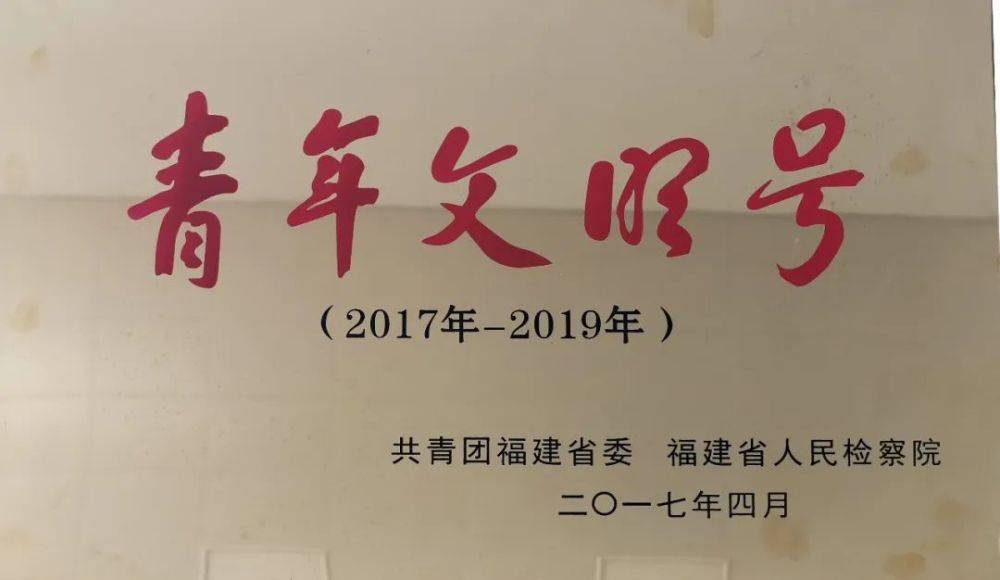 青年文明号
（2017年-2019年）
共青团福建省委 福建省人民检察院
二〇一七年四月